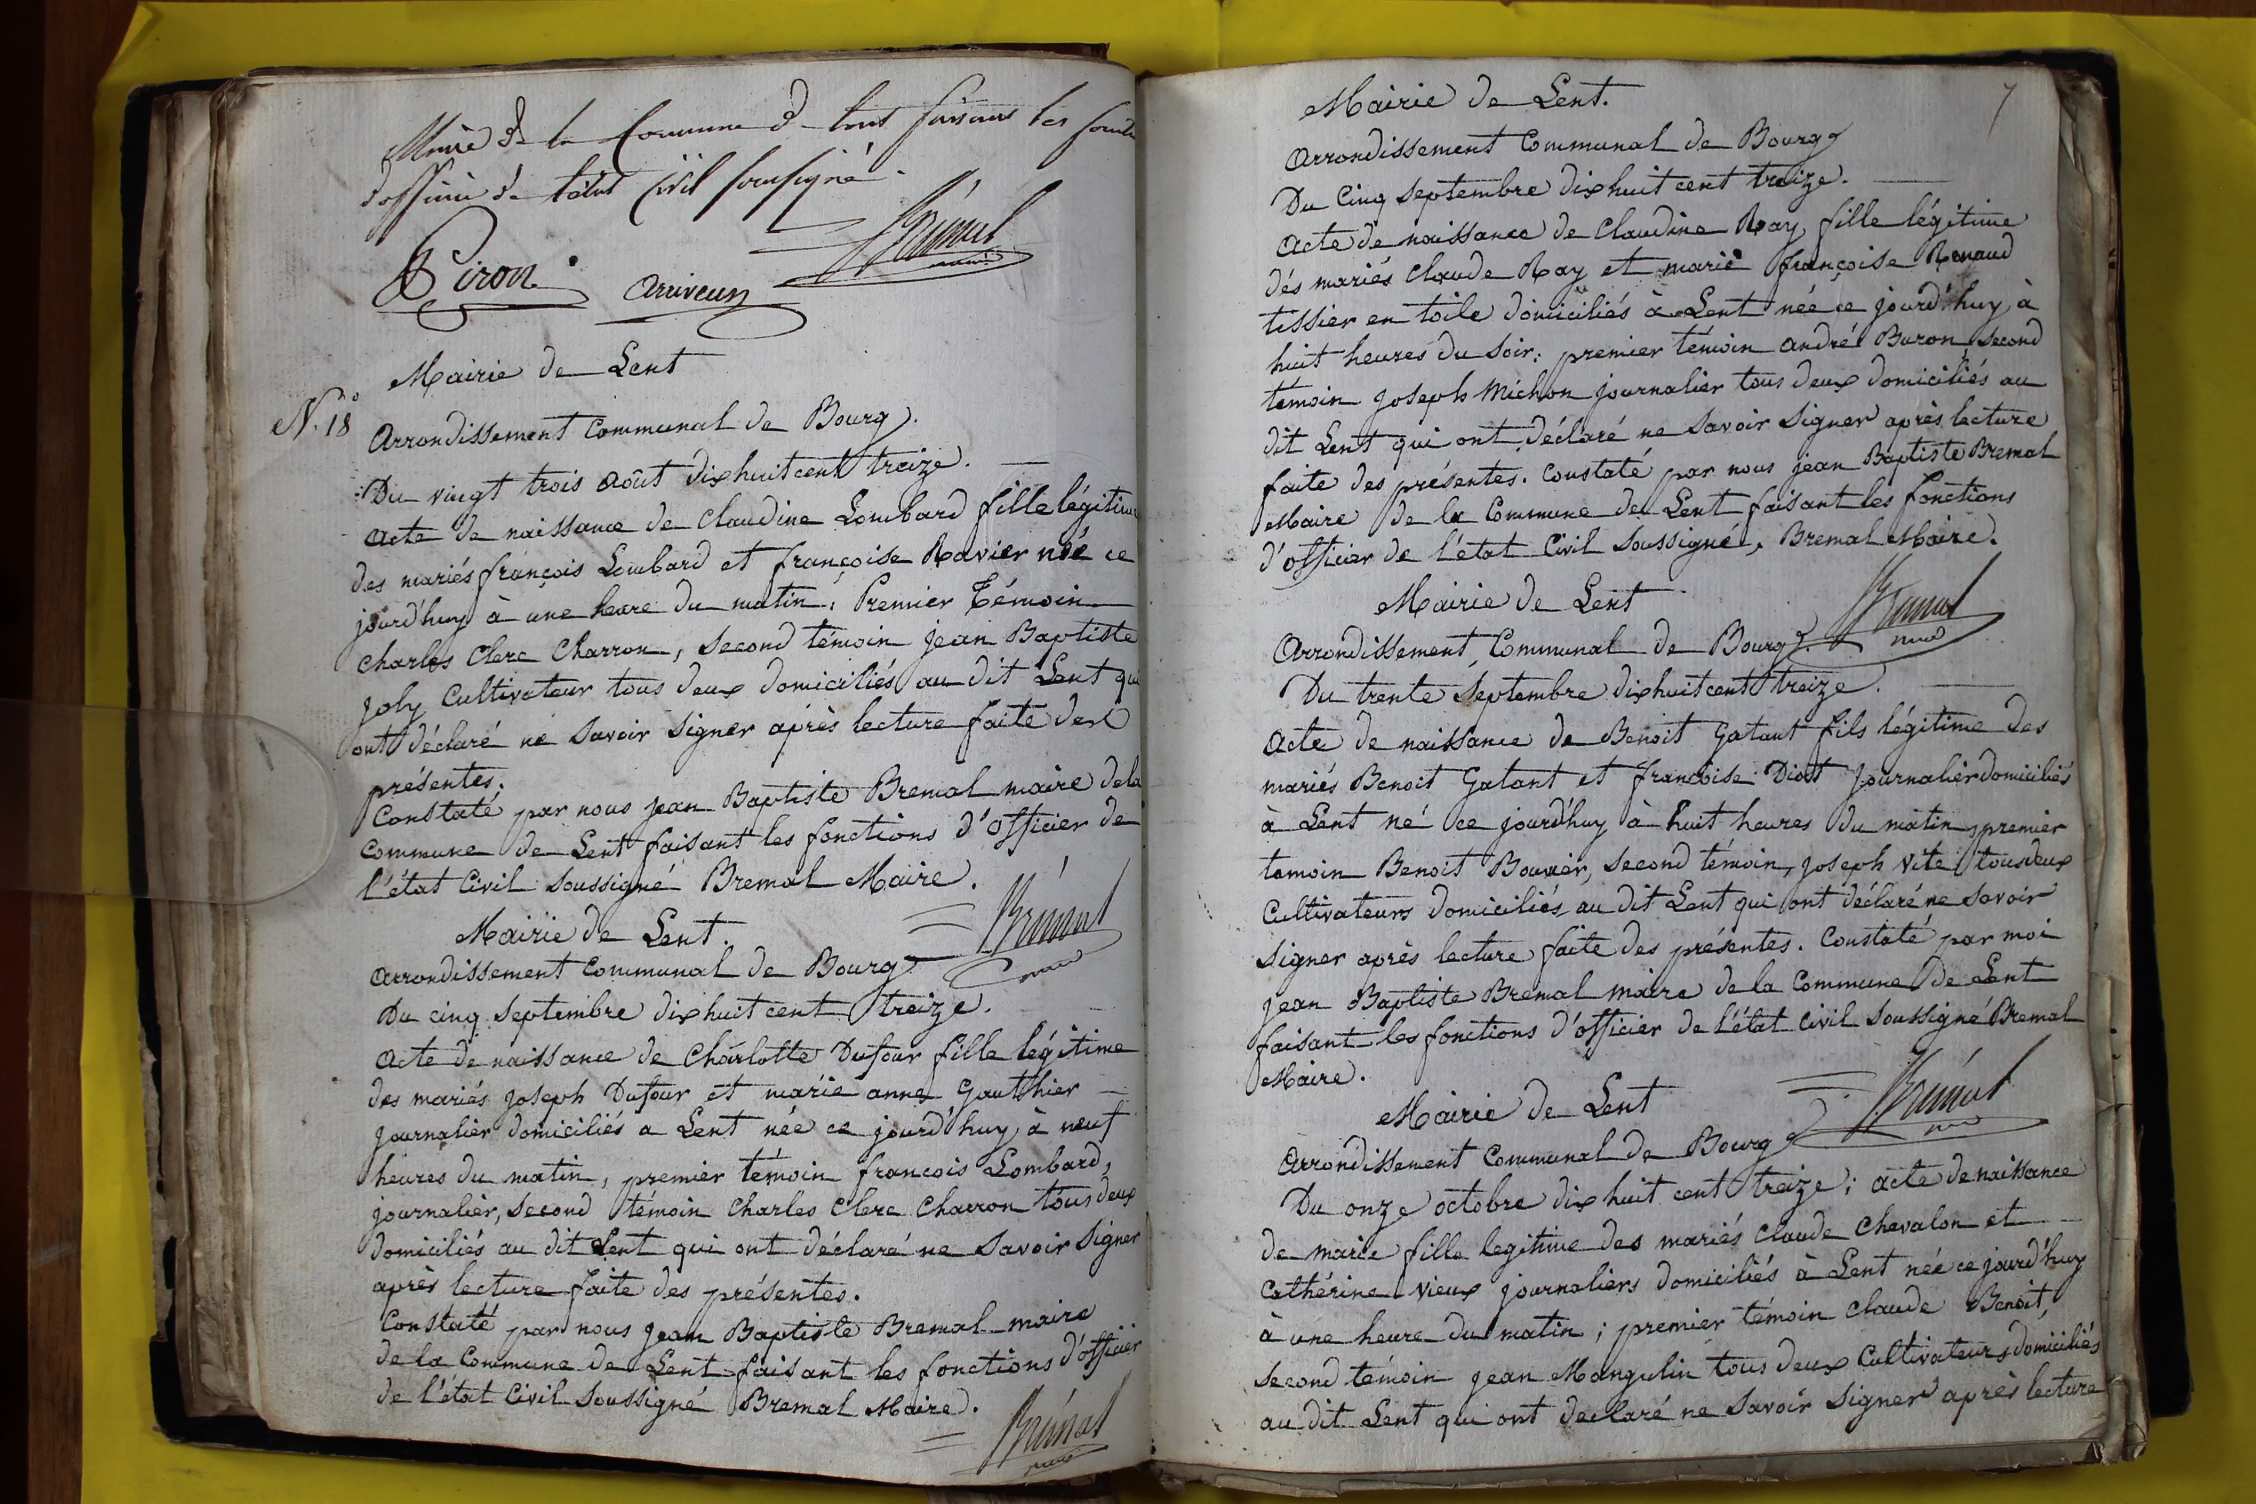 Maire de la Commune de Lent faisant les fonct
d'officier de l'état Civil soussigné.
Piron Arriveux Brémal maire
Mairie de Lent
N.° 18
Arrondissement Communal de Bourg.
Du vingt trois août dixhuitcent treize.
acte de naissance de Claudine Lombard fille légitime
des mariés françois Lombard et françoise Ravier née ce
jourd'huy à une heure du matin, Premier Témoin
Charles Clerc Charron, second témoin jean Baptiste
Joly Cultivateur tous deux domiciliés au dit Lent qui
ont déclaré ne savoir signer après lecture faite des
présentes.
Constaté par nous jean Baptiste Bremal maire dela
commune de Lent faisant les fonctions d'officier de
l'état Civil soussigné Bremal Maire.
Brémal maire
Mairie de Lent.
arrondissement Communal de Bourg
Du cinq septembre dixhuit cent treize.
Acte de naissance de Charlotte Dufour fille légitime
des mariés joseph Dufour et marie anne Gauthier
journalier domiciliés a Lent née ce jourd'huy à neuf
heures du matin, premier témoin francois Lombard,
journalier, second témoin Charles Clerc Charron tous deux
domiciliés au dit Lent qui ont déclaré ne savoir signer
après lecture faite des présentes.
Constaté par nous jean Baptiste Bremal maire
de la Commune de Lent faisant les fonctions d'officier
de l'état Civil soussigné Bremal Maire.
Brémal maire
7
Mairie de Lent.
Arrondissement Communal de Bourg
Du Cinq septembre dixhuit cent treize.
acte de naissance de Claudine Ray fille légitime
dés mariés Claude Ray et marie françoise Renaud
tissier en toile domiciliés à Lent née ce jourd'huy à
huit heures du soir; premier témoin andré Buron second
témoin joseph Michon journalier tous deux domiciliés au
dit Lent qui ont déclaré ne savoir signer après lecture
faite des présentes. Constaté par nous jean Baptiste Bremal
Maire de la Commune de Lent faisant les fonctions
d'officier de l'état Civil soussigné, Bremal Maire.
Mairie de Lent
Brémal maire
Arrondissement Communal de Bourg.
Du trente septembre dixhuitcent treize.
Acte de naissance de Benoit Gatant fils légitime des
mariés Benoit Gatant et francoise Diot journalier domiciliés
à Lent né ce jourd'huy à huit heures du matin, premier
temoin Benoit Bouvier, second témoin, joseph vite tousdeux
Cultivateurs domiciliés au dit Lent qui ont déclaré ne savoir
signer après lecture faite des présentes. Constaté par moi
jean Baptiste Bremal maire de la Commune de Lent
faisant les fonctions d'officier de l'état civil soussigné Bremal
Maire.
Mairie de Lent
Brémal maire
Arrondissement Communal de Bourg
Du onze octobre dixhuit cent treize; acte de naissance
de marie fille legitime des mariés claude Chevalon et
Cathérine vieux journaliers domiciliés à Lent née ce jourd'huy
à une heure du matin; premier témoin claude Benoit,
second témoin jean Mangulin tous deux Cultivateurs domiciliés
au dit Lent qui ont declaré ne savoir signer après lecture